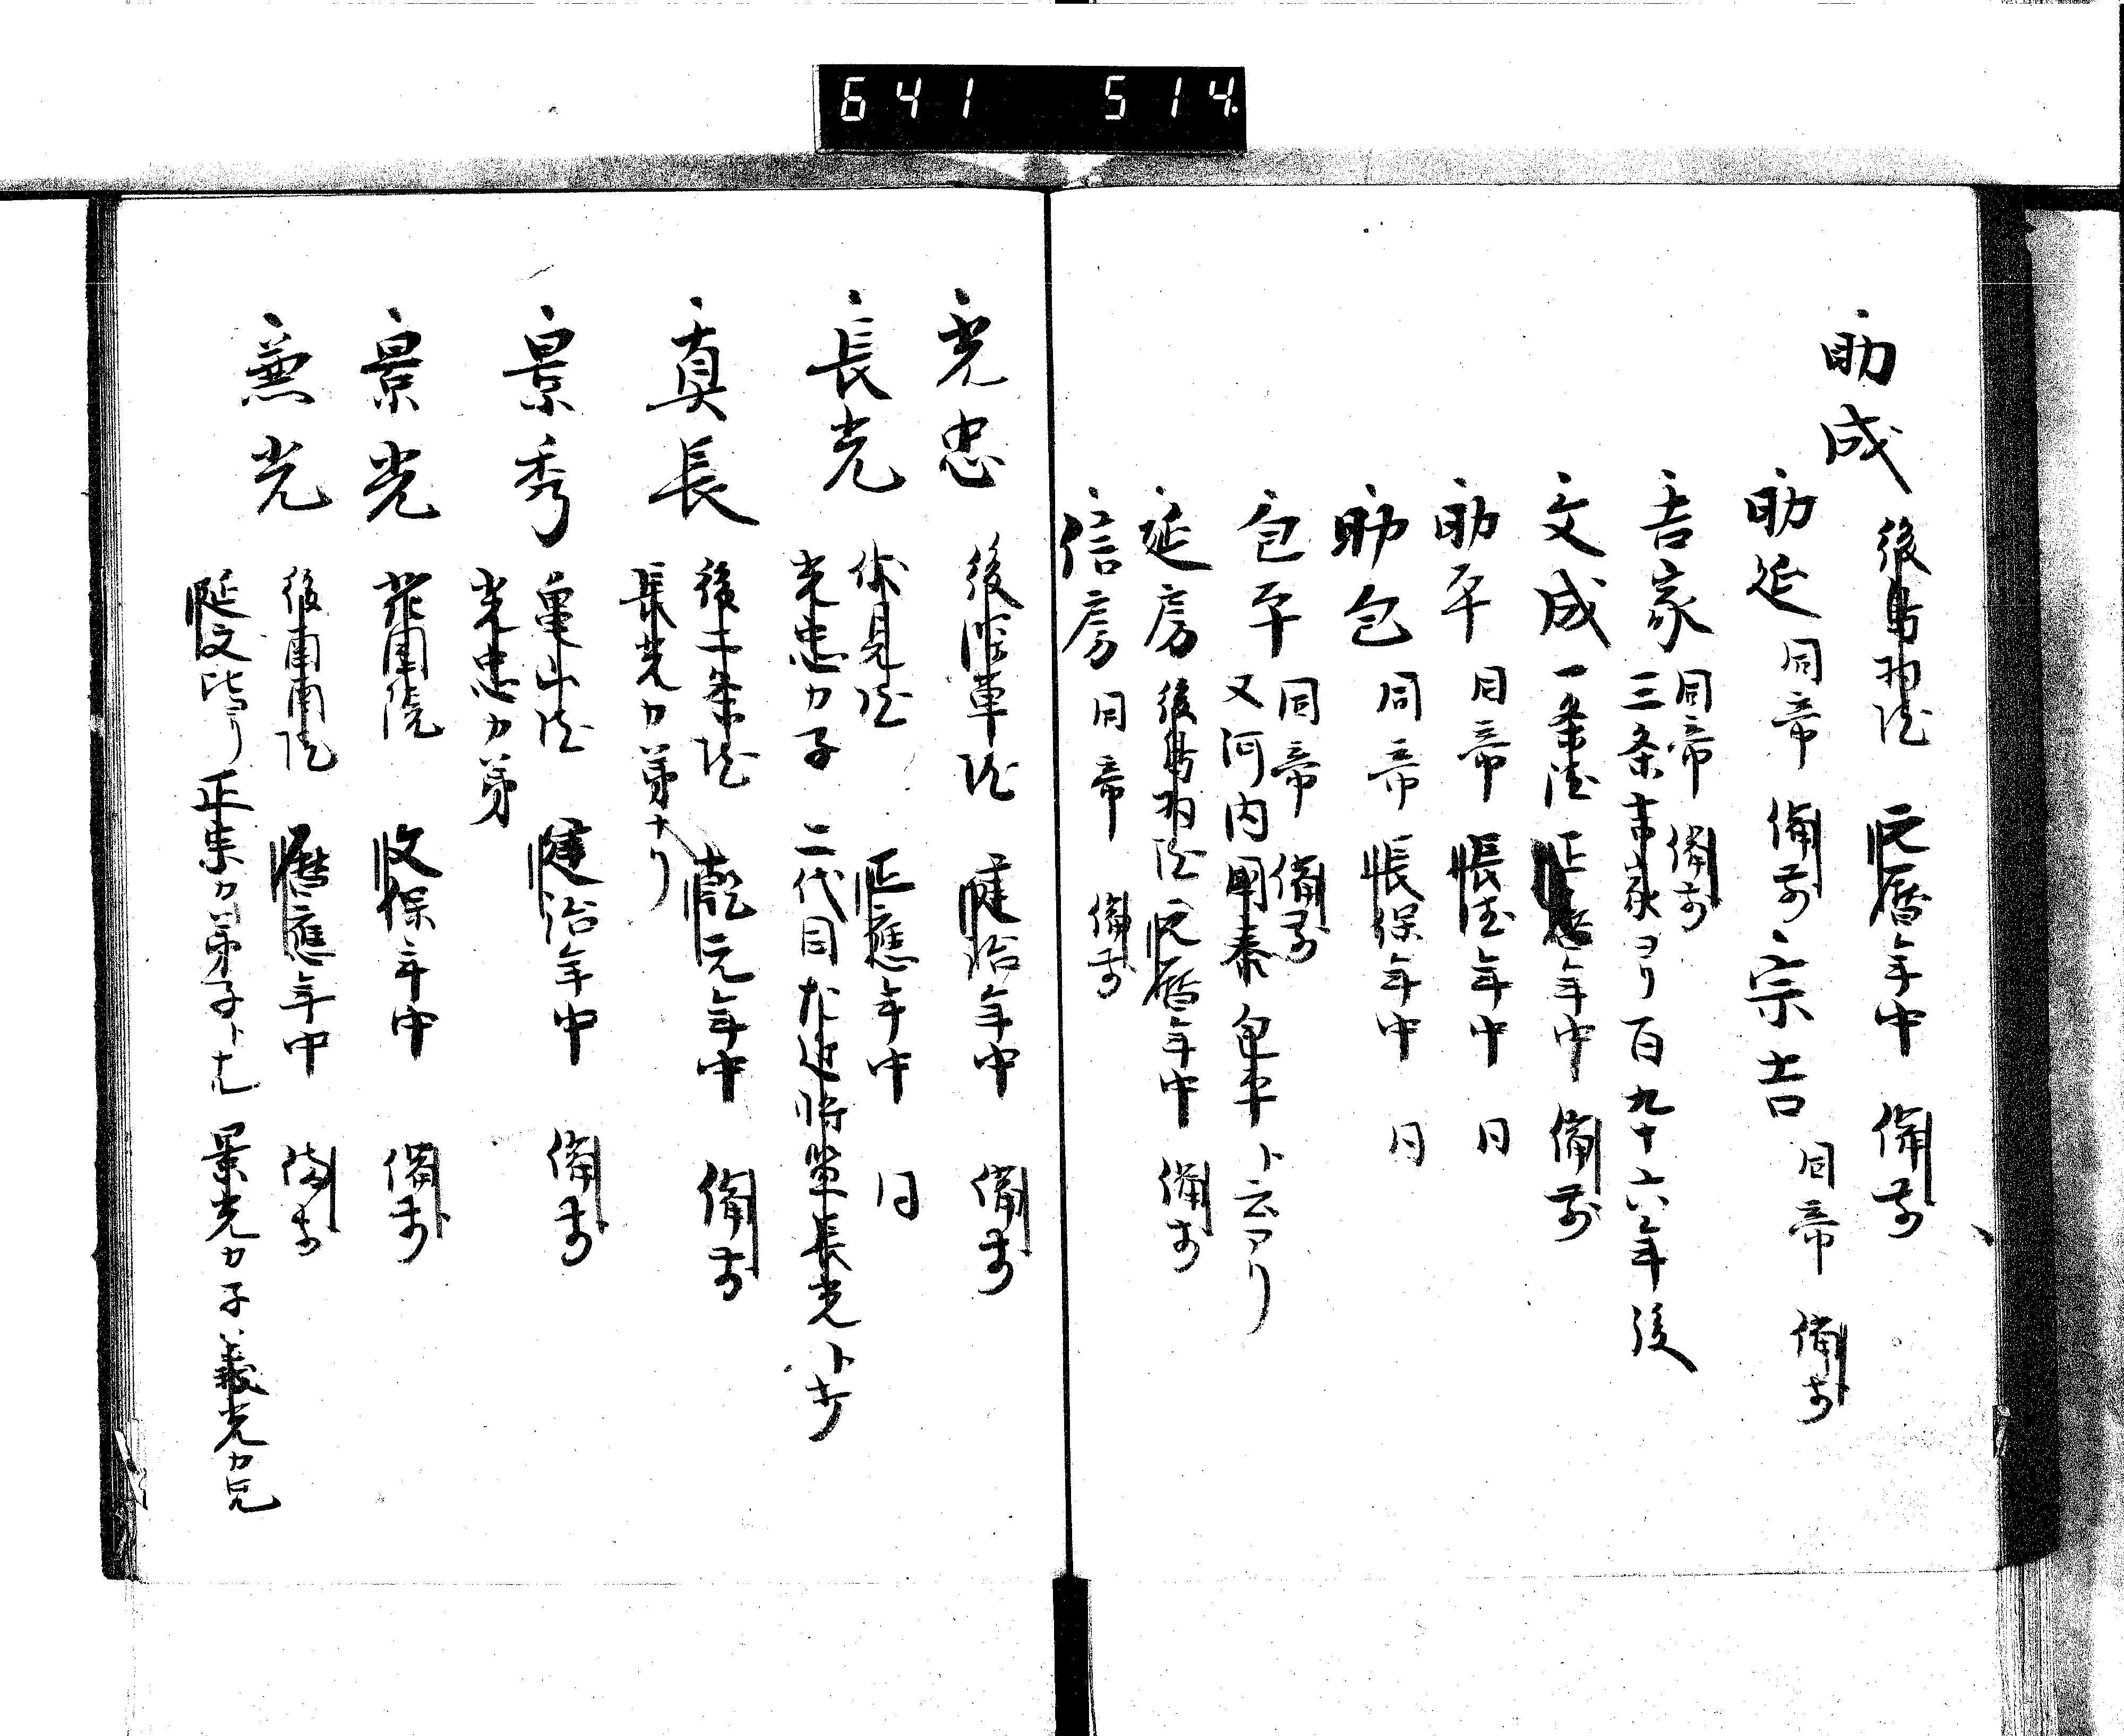 641 514
助成 後鳥羽院 元暦年中 備前
助延 同帝 備前 宗吉 同帝 備前
吉家 同帝 備前
三条吉家ヨリ百九十六年後
文成 一条院 正暦年中 備前
助平 同帝 長徳年中 同
助包 同帝 長保年中 同
包平 同帝 備前
又河内国秦包平ト云アリ
延房 後鳥羽院 元暦年中 備前
信房 同帝 備前
光忠 後深草院 建治年中 備前
長光 伏見院 正應年中 同
光忠カ子 二代目左近将監長光ト号
真長 後二条院 乾元年中 備前
長光カ弟ナリ
景秀 亀山院 建治年中 備前
光忠カ弟
景光 花園院 文保年中 備前
兼光 後醍醐院 暦應年中 備前
延文比ヨリ 正宗カ弟子ト云 景光カ子 義光カ兄